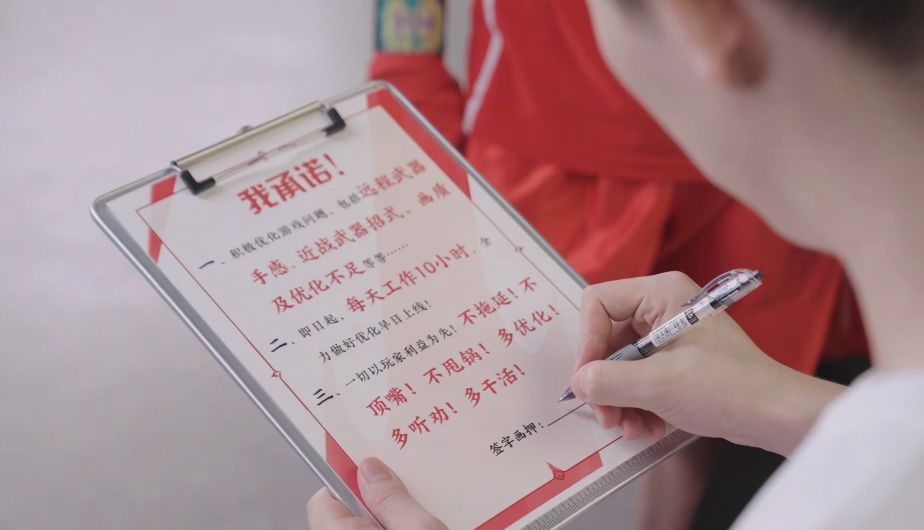 我承诺!
一、积极优化游戏问题,包括远程武器
手感、近战武器招式、画质
及优化不足等等……
二、即日起,每天工作10小时,全
力做好优化早日上线!
三、一切以玩家利益为先!不拖延!不
顶嘴!不甩锅!多优化!
多听劝!多干活!
签字画押: